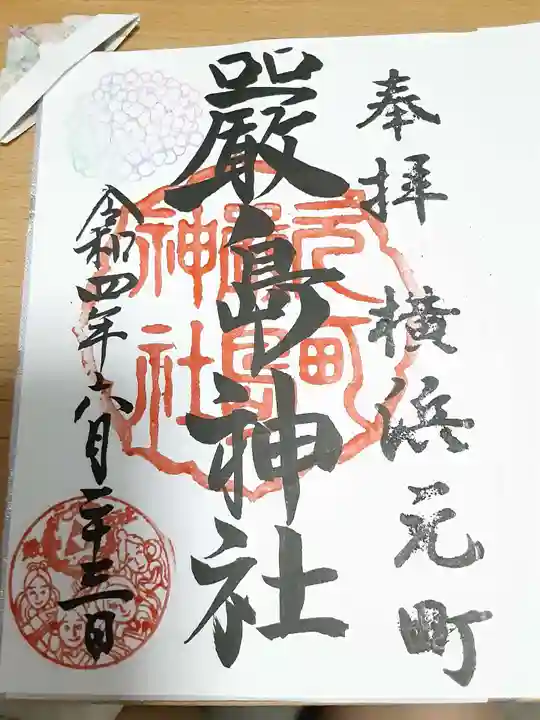 奉拝 横浜元町
嚴島神社
元町
嚴島
神社
令和四年六月二十三日